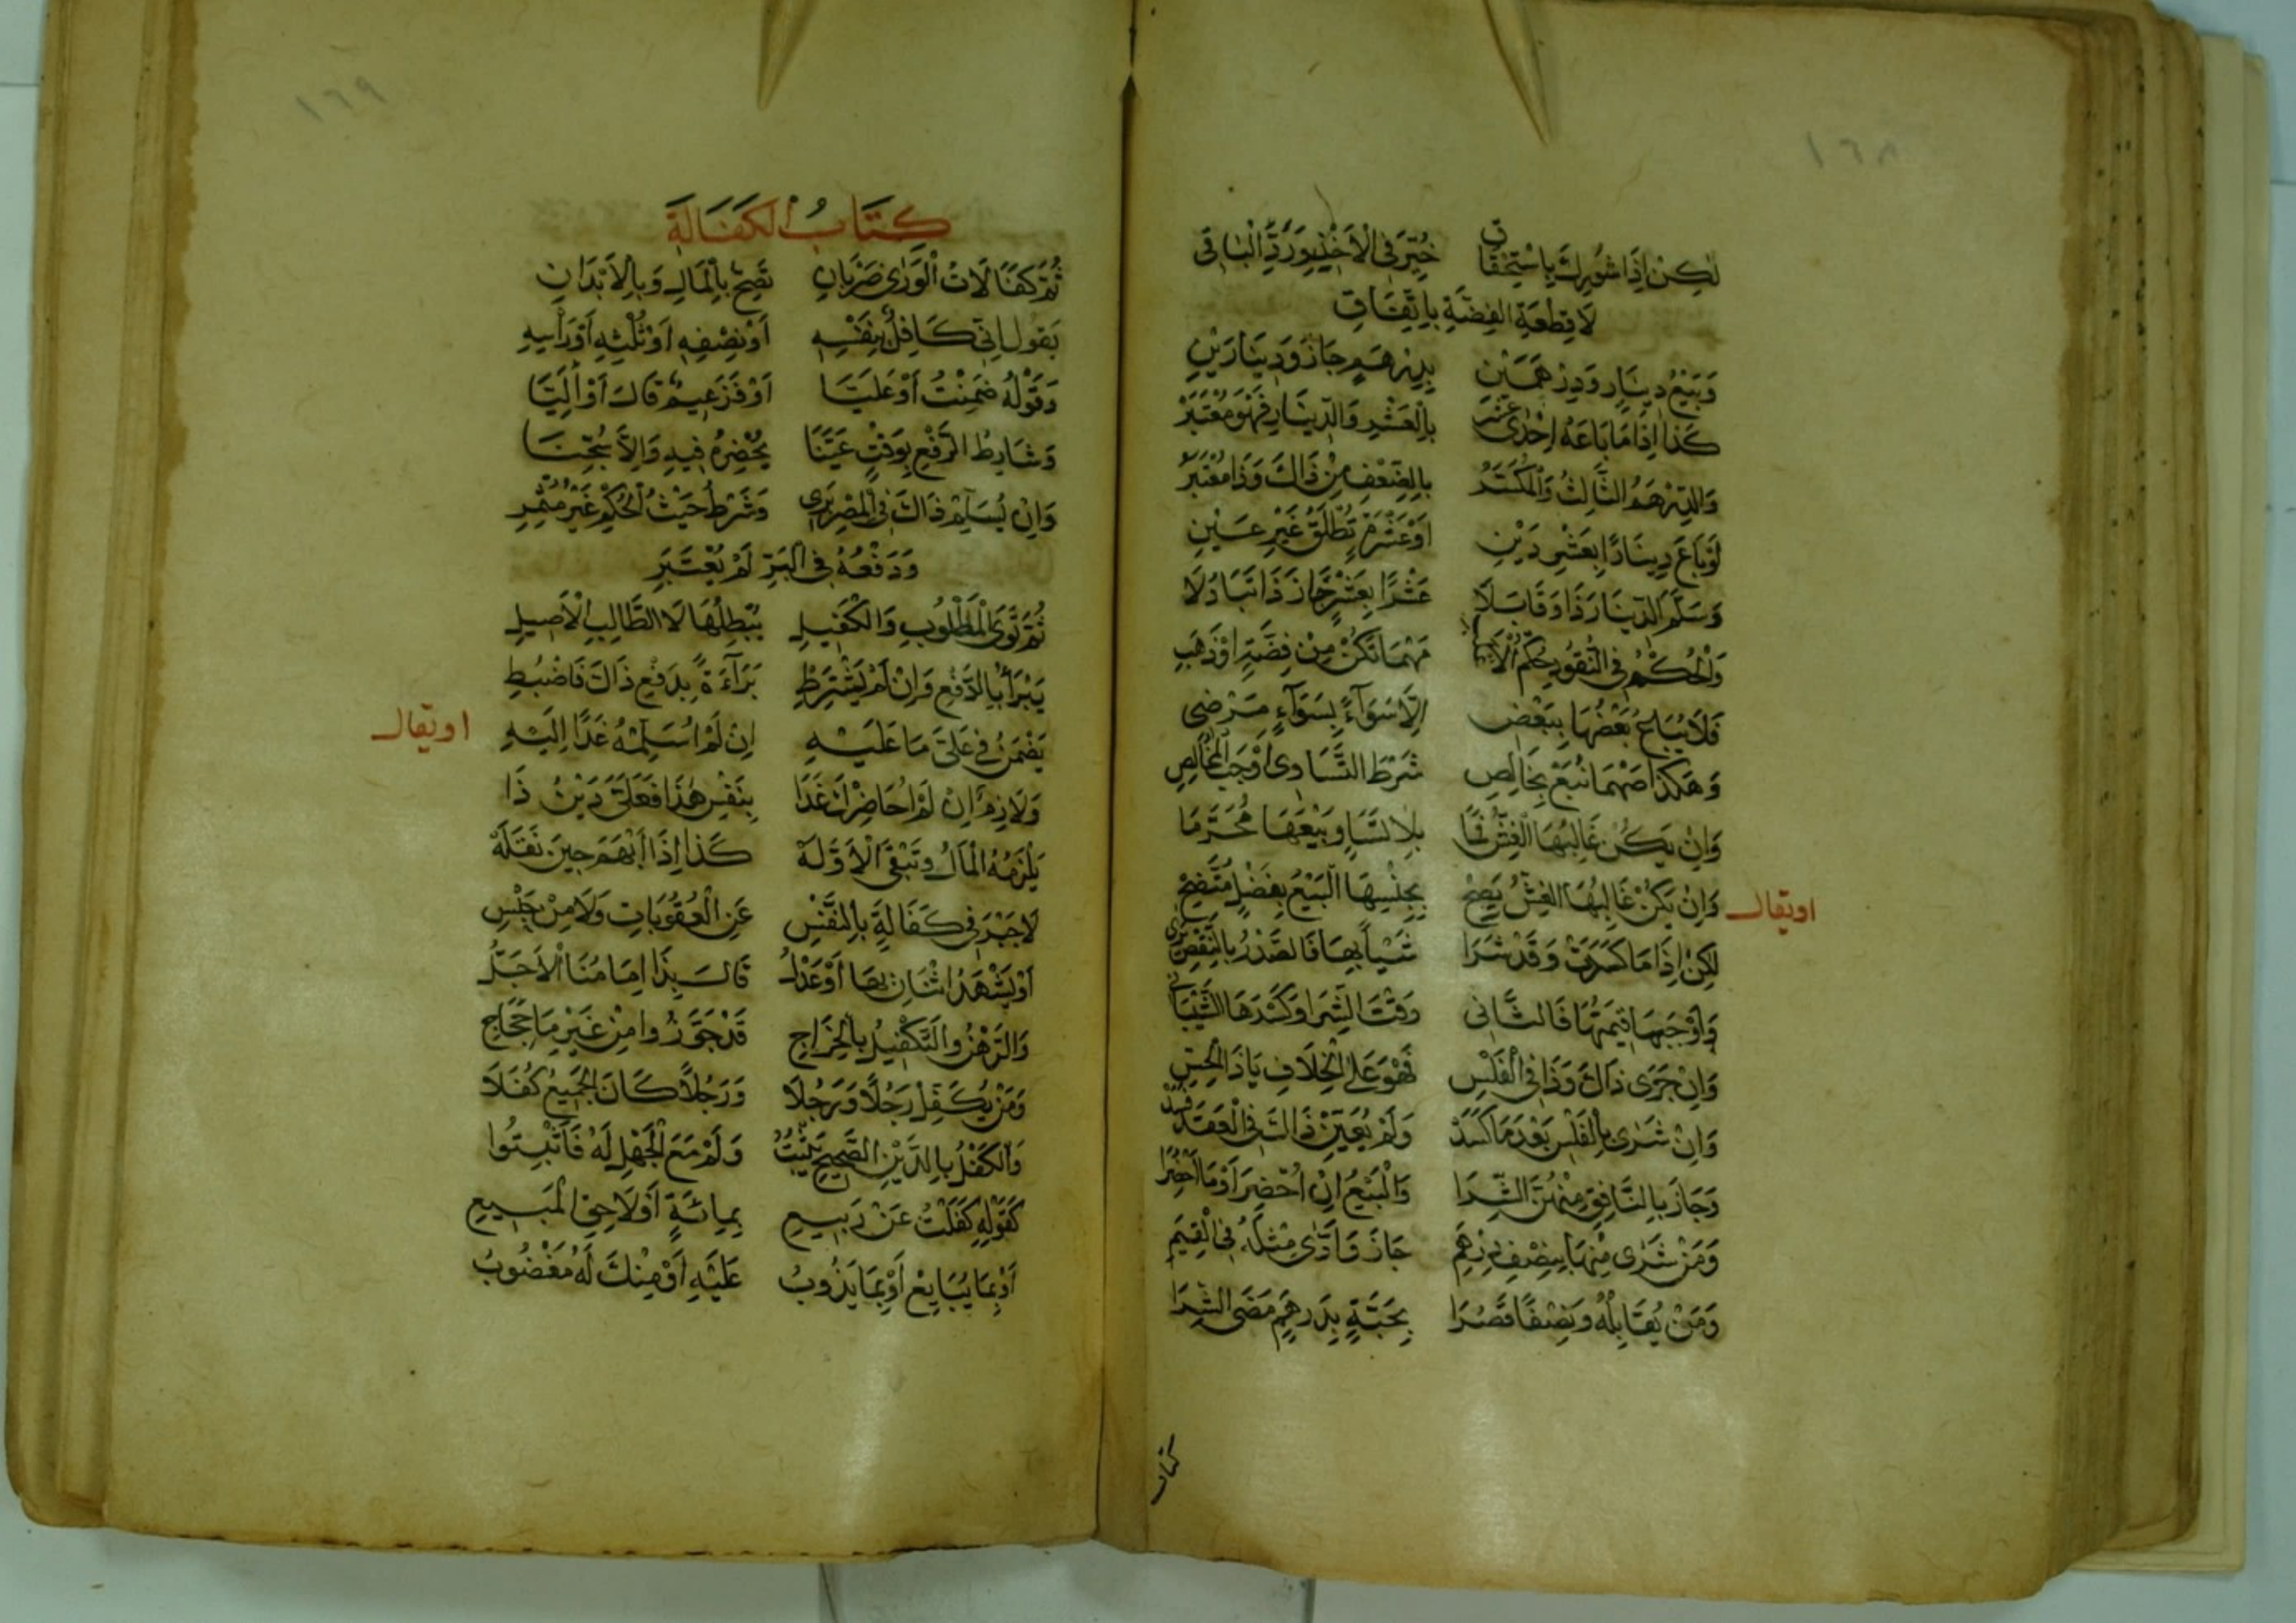 ١٦٨
لٰكِنْ اِذَا شُورِكَ بِاسْتِحْقَاقِ خُيِّرَ فِي الْاَخْذِ وَرَدِّ الْبَاقِي
لَا قِطْعَةِ الفِضَّةِ بِاتِّفَاقِ
وَبَيْعُ دِينَارٍ وَدِرْهَمَيْنِ بِدِرْهَمٍ جَازَ وَدِينَارَيْنِ
كَذَا اِذَا مَا بَاعَهُ اِحْدٰى عَشَرْ بِالْعَشْرِ وَالدِّينَارِ فَهْوَ مُعْتَبَرْ
وَالدِّرْهَمُ الثَّالِثُ وَالْمُكَسَّرُ بِالضِّعْفِ مِنْ ذَاكَ وَذَا مُعْتَبَرُ
لَوْ بَاعَ دِينَارًا بِعَشْرٍ دَيْنِ اَوْ عَشْرَةٍ تُطْلَقُ غَيْرِ عَيْنِ
وَسَلَّمَ الدِّينَارَ ذَا وَقَابَلَا عَشْرًا بِعَشْرٍ جَازَ ذَا تَبَادُلَا
وَالْحُكْمُ فِي النُّقُودِ حُكْمُ مَهْمَا تَكُنْ مِنْ فِضَّةٍ اَوْ ذَهَبِ
فَلَا يُبَاعُ بَعْضُهَا بِبَعْضِ اِلَّا سَوَآءً بِسَوَآءٍ مَرْضِي
وَهٰكَذَا مَهْمَا تُبَعْ بِخَالِصِ شَرْطَ التَّسَاوِي اَوْجَبَ الْمُخَالِصِ
وَاِنْ يَكُنْ غَالِبُهَا الْغِشُّ فَمَا بِلَا تَسَاوٍ بَيْعُهَا مُحَرَّمَا
وَاِنْ يَكُنْ غَالِبُهَا الغِشُّ يَصِحْ بِجِنْسِهَا الْبَيْعُ بِفَضْلٍ مُتَّضِحْ
او يقال
لٰكِنْ اِذَا مَا كَسَدَتْ وَقَدْ شَرَا شَيْأً بِهَا فَالصَّدْرُ بِالنَّقْضِ يَرٰى
وَاَوْجَبَهَا قِيمَتَهَا فَالثَّانِي وَقْتَ الشِّرَا وَكَسْدَهَا الشَّيْبَانِي
وَاِنْ جَرٰى ذَاكَ وَذَا فِي الْفَلْسِ فَهْوَ عَلَى الْخِلَافِ يَا ذَا الْحِسِّ
وَاِنْ شَرٰى بِالْفَلْسِ بَعْدَ مَا كَسَدْ وَلَمْ يُعَيِّنْ ذَاكَ فِي الْعَقْدِ فَسَدْ
وَجَازَ بِالنَّافِقِ مِنْهُنَّ الشِّرَا وَالْبَيْعُ اِنْ اُحْضِرَ اَوْ مَا اُحْضِرَا
وَمَنْ شَرٰى مِنْهَا بِنِصْفِ دِرْهَمِ جَازَ وَاَدّٰى مِثْلَهُ فِي الْقِيَمِ
وَمَنْ يُقَابِلْهُ وَنِصْفًا قَصُرَا بِحَبَّةٍ بِدِرْهَمٍ مَضَى الشِّرَا
كتاب
١٦٩
كِتَابُ الْكَفَالَةِ
ثُمَّ كَفَالَاتُ الْوَرٰى ضَرْبَانِ تَصِحُّ بِالْمَالِ وَبِالْاَبْدَانِ
يَقُولُ اِنِّي كَافِلٌ بِنَفْسِهِ اَوْ نِصْفِهِ اَوْ ثُلْثِهِ اَوْ رَأْسِهِ
وَقَوْلُهُ ضَمِنْتُ اَوْ عَلَيَّا اَوْ فَزَعِيمٌ قَالَ اَوْ اِلَيَّا
وَشَارِطُ الرَّفْعِ بِوَقْتٍ عَيَّنَا يُحْضِرُهُ فِيهِ وَاِلَّا سُجِنَا
وَاِنْ يُسَلِّمْ ذَاكَ فِي الْمِصْرِ بَرِي وَشَرْطُ حَيْثُ الْحُكْمُ غَيْرُ مُثْمِرِ
وَدَفْعُهُ فِي الْبَرِّ لَمْ يُعْتَبَرِ
ثُمَّ تَوَى الْمَطْلُوبِ وَالْكَفِيلِ يُبْطِلُهَا لَا الطَّالِبِ الْاَصِيلِ
يَبْرَأُ بِالدَّفْعِ وَاِنْ لَمْ يَشْتَرِطْ بَرَآءَةً بِدَفْعِ ذَاكَ فَاضْبُطِ
يَضْمَنُ فِي عَلَيَّ مَا عَلَيْهِ اِنْ لَمْ اُسَلِّمْهُ غَدًا اِلَيْهِ
او يقال
وَلَازِمٌ اِنْ لَمْ اُحَاضِرْكَ غَدَا بِنَفْسِ هٰذَا فَعَلَيَّ دَيْنُ ذَا
يَلْزَمُهُ الْمَالُ وَتَبْقَى الْاَوَّلَهْ كَذَا اِذَا اَبْهَمَ حِينَ نَقَلَهْ
لَا جَبْرَ فِي كَفَالَةٍ بِالنَّفْسِ عَنِ الْعُقُوبَاتِ وَلَا مِنْ حَبْسِ
اَوْ يَشْهَدُ اثْنَانِ بِهَا اَوْ عَدْلُ قَالَ بِذَا اِمَامُنَا الْاَجَلُّ
وَالرَّهْنُ وَالتَّكْفِيلُ بِالْخَرَاجِ قَدْ جَوَّزُوا مِنْ غَيْرِ مَا حِجَاجِ
وَمَنْ يُكَفِّلْ رَجُلًا وَرَجُلَا وَرَجُلًا كَانَ الْجَمِيعُ كُفَلَا
وَالْكَفْلُ بِالدَّيْنِ الصَّحِيحِ يَثْبُتُ وَلَوْ مَعَ الْجَهْلِ لَهُ فَاَثْبِتُوا
كَقَوْلِهِ كَفَلْتُ عَنْ رَبِيعِ بِمِائَةٍ اَوْ لَاحِقِي الْمَبِيعِ
اَوْ بِمَا يُبَايِعْ اَوْ بِمَا يَذُوبُ عَلَيْهِ اَوْ مِنْكَ لَهُ مَغْضُوبُ